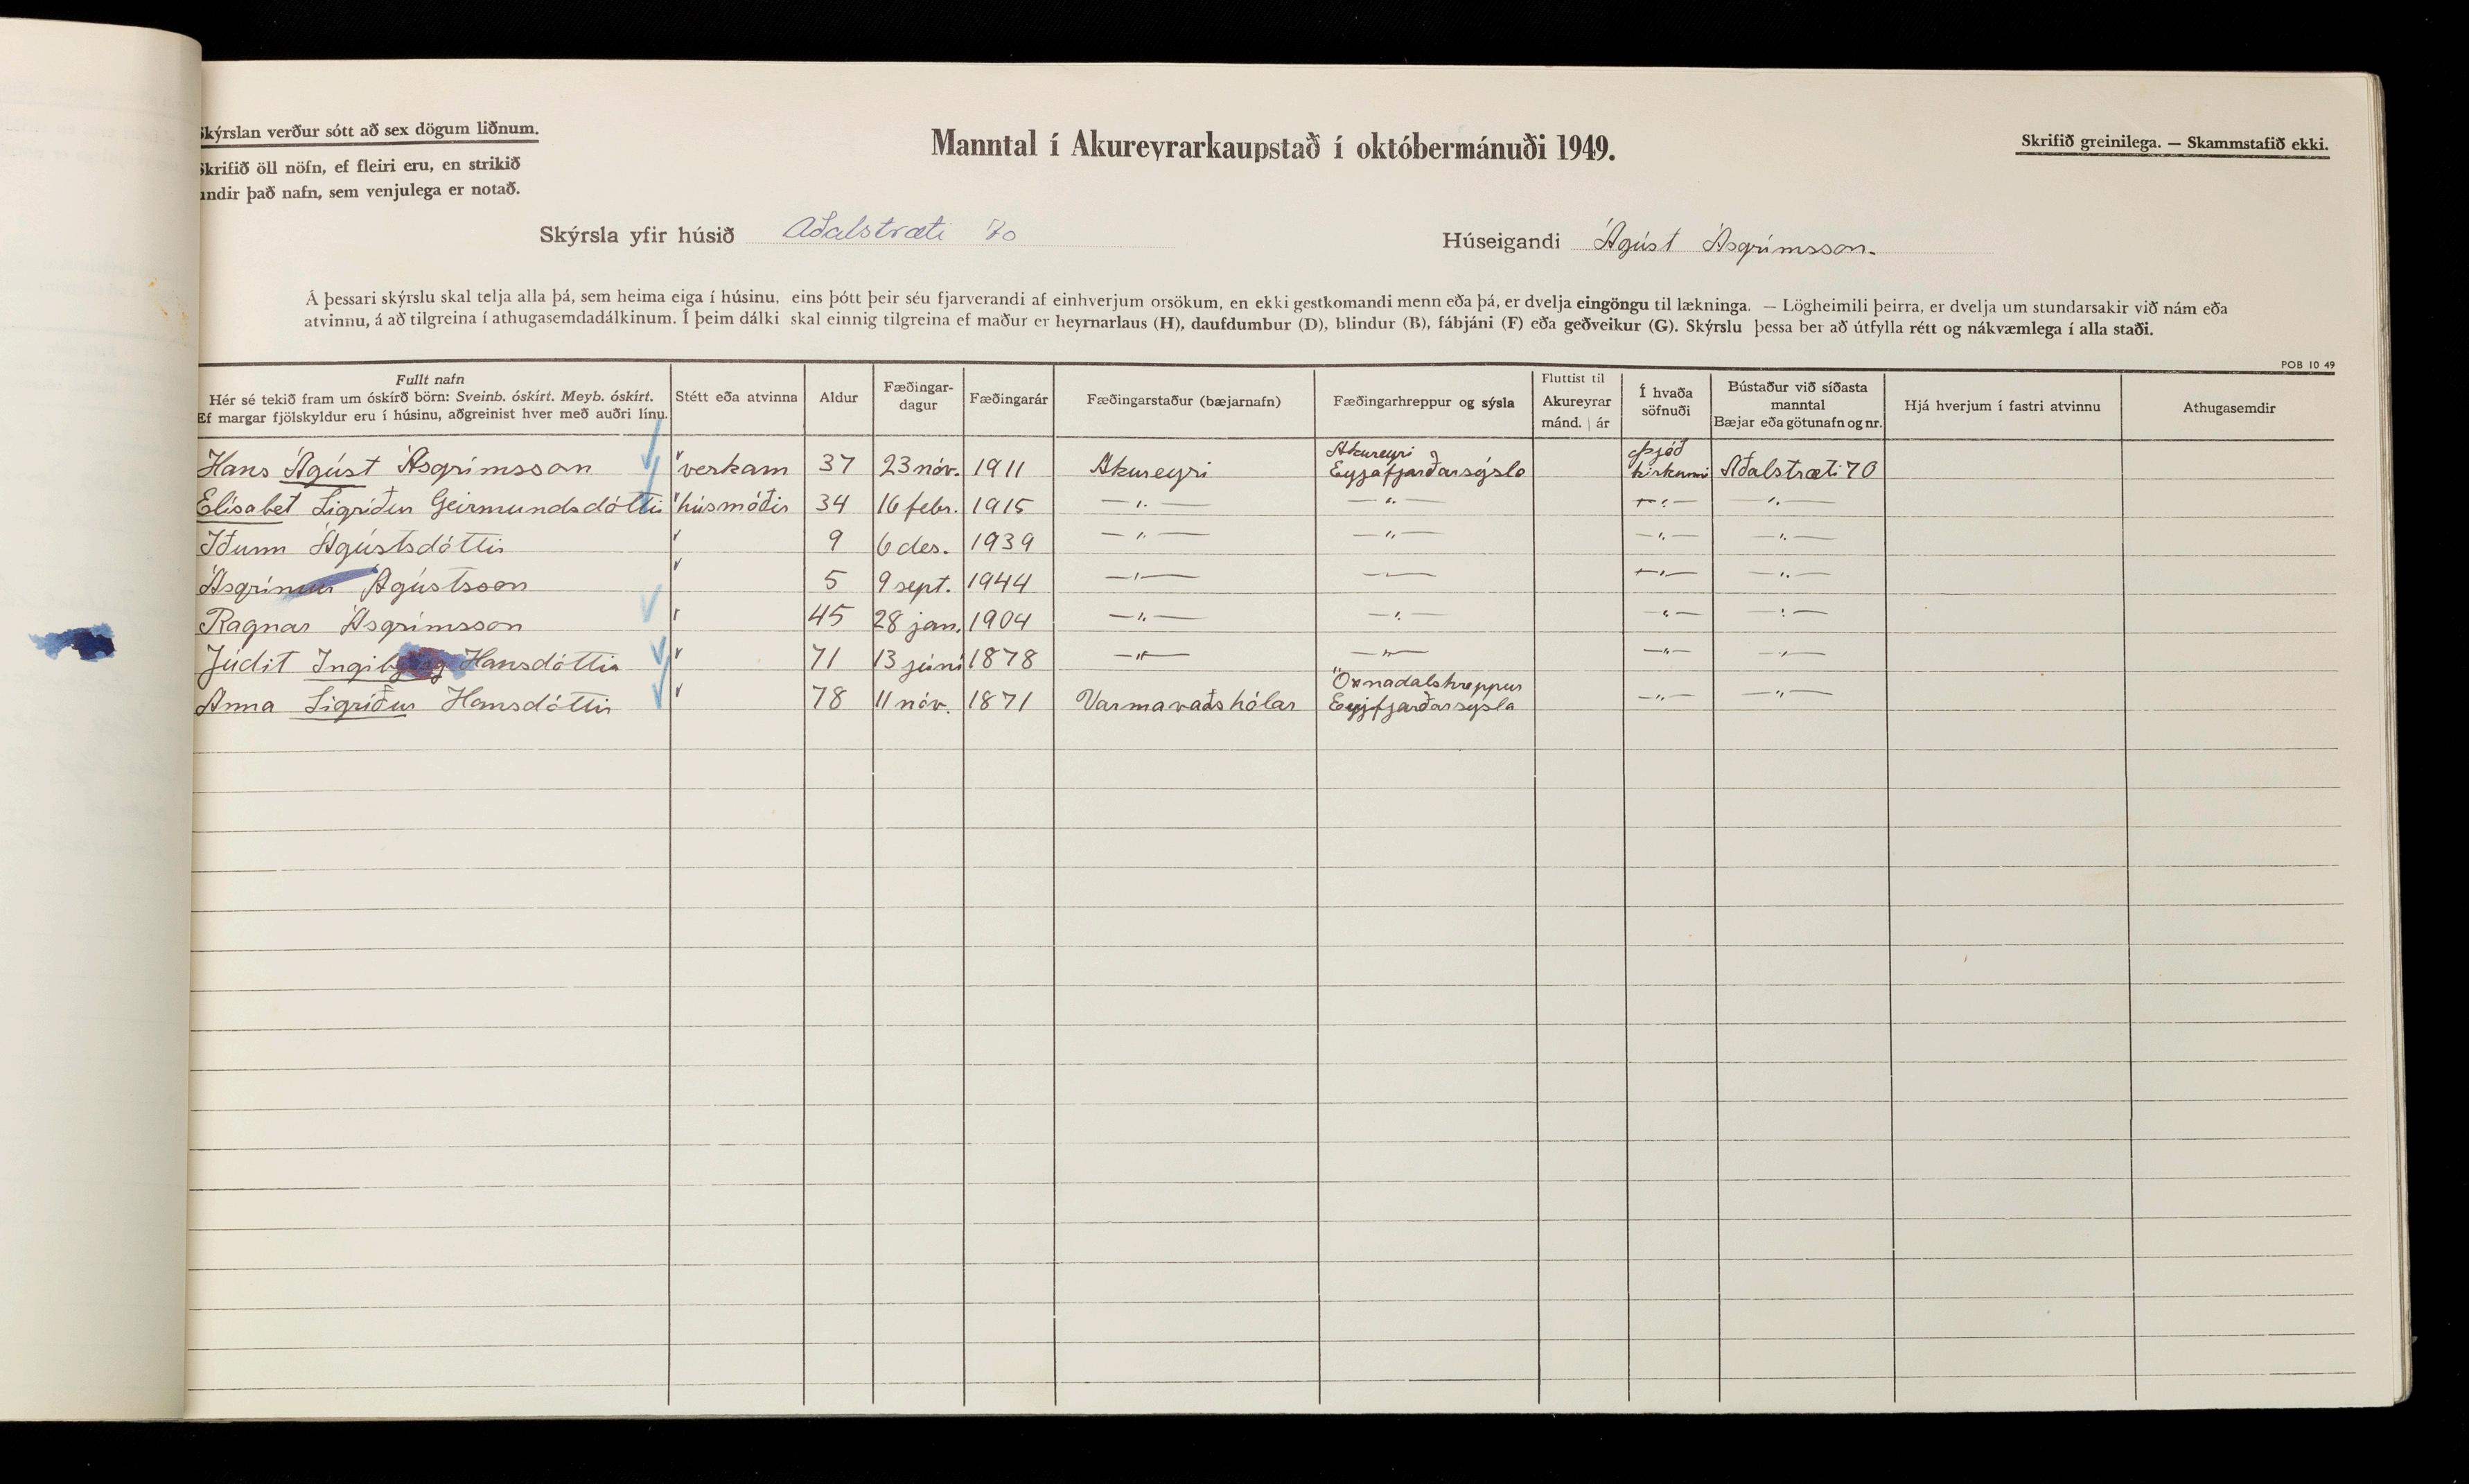 Skýrslan verður sótt að sex dögum liðnum.
Skrifið öll nöfn, ef fleiri eru, en strikið
undir það nafn, sem venjulega er notað.
Manntal í Akureyrarkaupstað í októbermánuði 1949.
Skrifið greinilega. — Skammstafið ekki.
Skýrsla yfir húsið Aðalstræti 70
Húseigandi Ágúst Ásgrímsson.
Á þessari skýrslu skal telja alla þá, sem heima eiga í húsinu, eins þótt þeir séu fjarverandi af einhverjum orsökum, en ekki gestkomandi menn eða þá, er dvelja eingöngu til lækninga. — Lögheimili þeirra, er dvelja um stundarsakir við nám eða
atvinnu, á að tilgreina í athugasemdadálkinum. Í þeim dálki skal einnig tilgreina ef maður er heyrnarlaus (H), daufdumbur (D), blindur (B), fábjáni (F) eða geðveikur (G). Skýrslu þessa ber að útfylla rétt og nákvæmlega í alla staði.
POB 10 49
Fullt nafn
Hér sé tekið fram um óskírð börn: Sveinb. óskírt. Meyb. óskírt.
Ef margar fjölskyldur eru í húsinu, aðgreinist hver með auðri línu.
Stétt eða atvinna
Aldur
Fæðingar-
dagur
Fæðingarár
Fæðingarstaður (bæjarnafn)
Fæðingarhreppur og sýsla
Fluttist til
Akureyrar
mánd. | ár
Í hvaða
söfnuði
Bústaður við síðasta
manntal
Bæjar eða götunafn og nr.
Hjá hverjum í fastri atvinnu
Athugasemdir
Hans Ágúst Ásgrímsson verkam 37 23 nóv. 1911 Akureyri Akureyri Eyjafjarðarsýsla þjóð kirkunni Aðalstræti 70
Elísabet Sigríður Geirmundsdóttir húsmóðir 34 16 febr. 1915 —"— —"— —"— —"—
Iðunn Ágústsdóttir 9 6 des. 1939 —"— —"— —"— —"—
Ásgrímur Ágústsson 5 9 sept. 1944 —"— —"— —"— —"—
Ragnar Ásgrímsson 45 28 jan. 1904 —"— —"— —"— —"—
Júdit Ingibjörg Hansdóttir 71 13 júní 1878 —"— —"— —"— —"—
Anna Sigríður Hansdóttir 78 11 nóv. 1871 Varmavaðshólar Öxnadalshreppur Eyjfjarðarsýsla —"— —"—